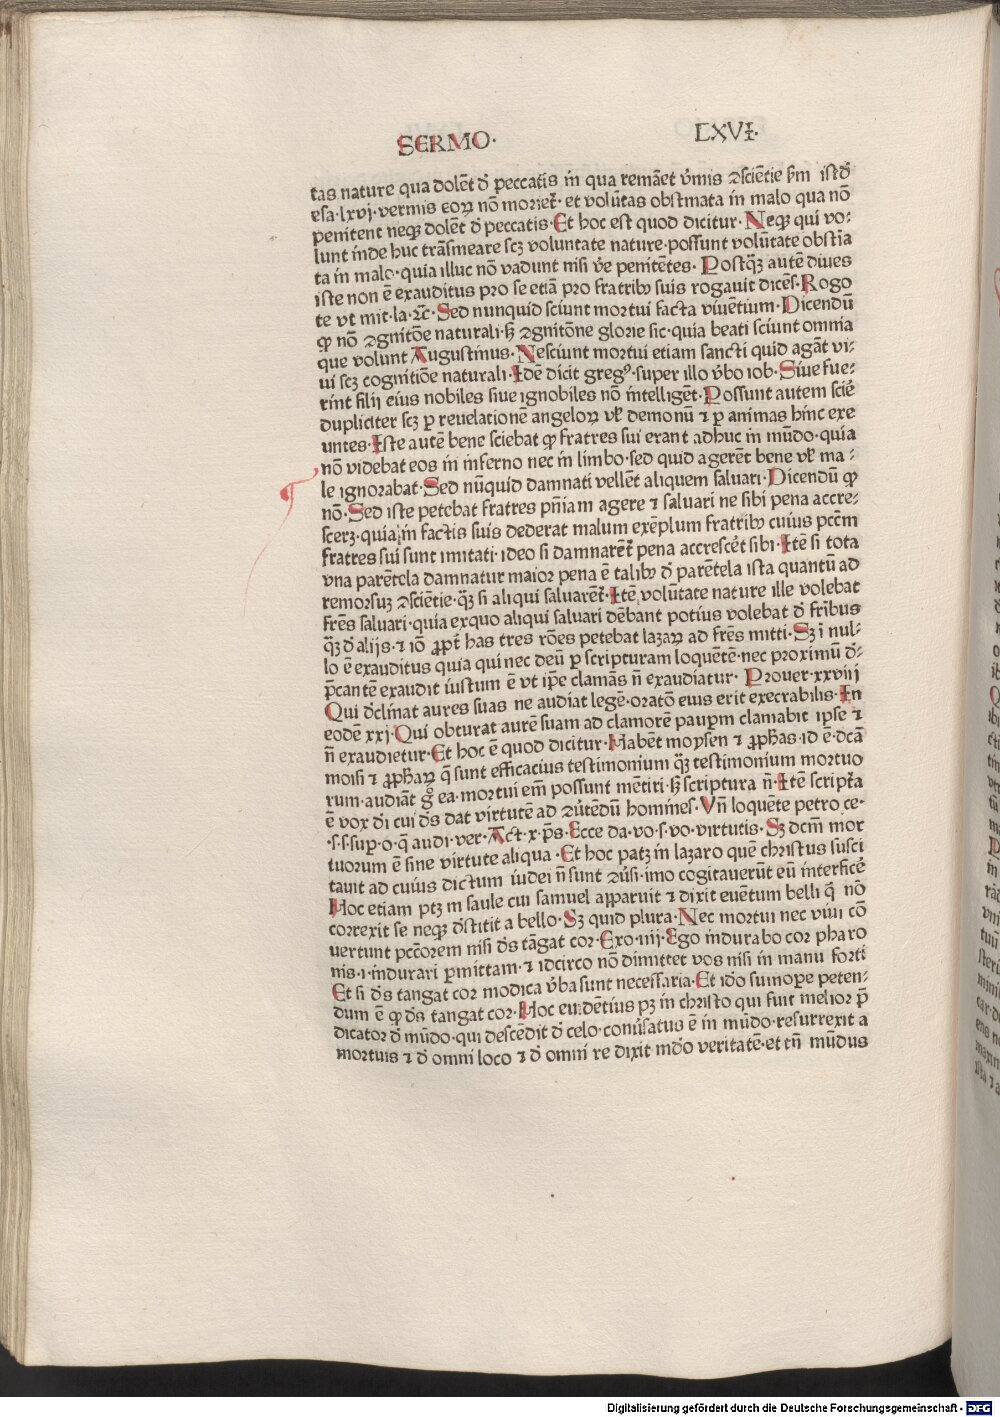 SERMO· LXVI·
tas nature qua dolēt đ peccatis in qua remāet v̄mis ɔsciētie sm̄ istđ
esa·lxvj·vermis eoꝝ nō moriet᷑· et volūtas obstinata in malo qua nō
penitent neqꝫ dolēt đ peccatis·Et hoc est quod dicitur·Neqꝫ qui vo-
lunt inde huc trāsmeare scꝫ voluntate nature·possunt volūtate obstīa
ta in malo·quia illuc nō vadunt nisi v̄e penitētes· Postqꝫ̄ autē diues
iste non ē exauditus pro se etiā pro fratribꝰ suis rogauit dicēs·Rogo
te vt mit·la·ꝛc̄·Sed nunquid sciunt mortui facta viuētium·Dicendū
ꝙ nō ɔgnitōe naturali·sꝫ ɔgnitōne glorie sic·quia beati sciunt omnia
que volunt Augustinus·Nesciunt mortui etiam sancti quid agāt vi-
ui scꝫ cognitiōe naturali·Idē dicit gregꝰ·super illo v̄bo iob·Siue fue-
rint filij eius nobiles siue ignobiles nō intelligēt·Possunt autem scir̄
dupliciter scꝫ p̲ reuelationē angeloꝝ vł demonū ⁊ p̲ animas hinc exe
untes·Iste autē bene sciebat ꝙ fratres sui erant adhuc in mūdo·quia
nō videbat eos in inferno nec in limbo·sed quid agerēt bene vł ma-
le ignorabat·Sed nūquid damnati vellēt aliquem saluari·Dicendū ꝙ
nō·Sed iste petebat fratres pn̄iam agere ⁊ saluari ne sibi pena accre-
scerꝫ·quia in factis suis dederat malum exēplum fratribꝰ cuius pcc̄m
fratres sui sunt imitati·ideo si damnarēt᷑ pena accresceŕt sibi·Itē si tota
vna parētela damnatur maior pena ē talibꝰ đ parētela ista quantū ad
remorsuꝫ ɔsciētie·qꝫ̄ si aliqui saluarēt᷑·Itē volūtate nature ille volebat
fr̄es saluari·quia exquo aliqui saluari dēbant potius volebat đ fr̄ibus
qꝫ̄ đ alijs·⁊ iō ꝓpt̄ has tres rōes petebat lazaꝝ ad fr̄es mitti·Sꝫ ī nul-
lo ē exauditus quia qui nec deū p̲ scripturam loquētē·nec proximū đ-
p̄cantē exaudit iustum ē vt ip̄e clamās n̄ exaudiatur· Prouer·xxviij
Qui đclinat aures suas ne audiat legē·oratō eius erit execrabilis·In
eodē xxj·Qui obturat aurē suam ad clamorē paup̲m clamabit ipse ⁊
n̄ exaudietur·Et hoc ē quod dicitur·Habēt moysen ⁊ ꝓph̄as·id ē·dc̄a
moisi ⁊ ꝓph̄aꝝ q̄ sunt efficacius testimonium qꝫ̄ testimonium mortuo
rum·audiāt g̊ ea·mortui em̄ possunt mētiri·sꝫ scriptura n̄·Itē script̄a
ē vox đi cui đs dat virtutē ad ɔūtēdū homines·Vn̄ loquēte petro ce-
·s·s·sup̲·o·q̄ audi·ver·Act·x·p̄s·Ecce da·vo·s·vo·virtutis·Sꝫ dcm̄ mor
tuorum ē sine virtute aliqua·Et hoc patꝫ in lazaro quē christus susci
tauit ad cuius dictum iudei n̄ sunt ɔūsi·imo cogitauerūt eū interficeŕ
Hoc etiam ptꝫ in saule cui samuel apparuit ⁊ dixit euētum belli q̄ nō
correxit se neqꝫ đstitit a bello·Sꝫ quid plura·Nec mortui nec viui cō
uertunt pcc̄orem nisi đs tāgat cor·Exo·iiij·Ego indurabo cor pharo
nis·i·indurari p̲mittam·⁊ idcirco nō dimittet vos nisi in manu forti
Et si đs tangat cor modica v̄ba sunt necessaria·Et iđo sumope peten-
dum ē ꝙ đs tangat cor·Hoc euidētius pꝫ in christo qui fuit melior p̄
dicator đ mūdo·qui descēdit đ celo·conūsatus ē in mūdo·resurrexit a
mortuis ⁊ đ omni loco ⁊ đ omni re dixit mđo veritatē·et tn̄ mūdus
Digitalisierung gefördert durch die Deutsche Forschungsgemeinschaft - DFG